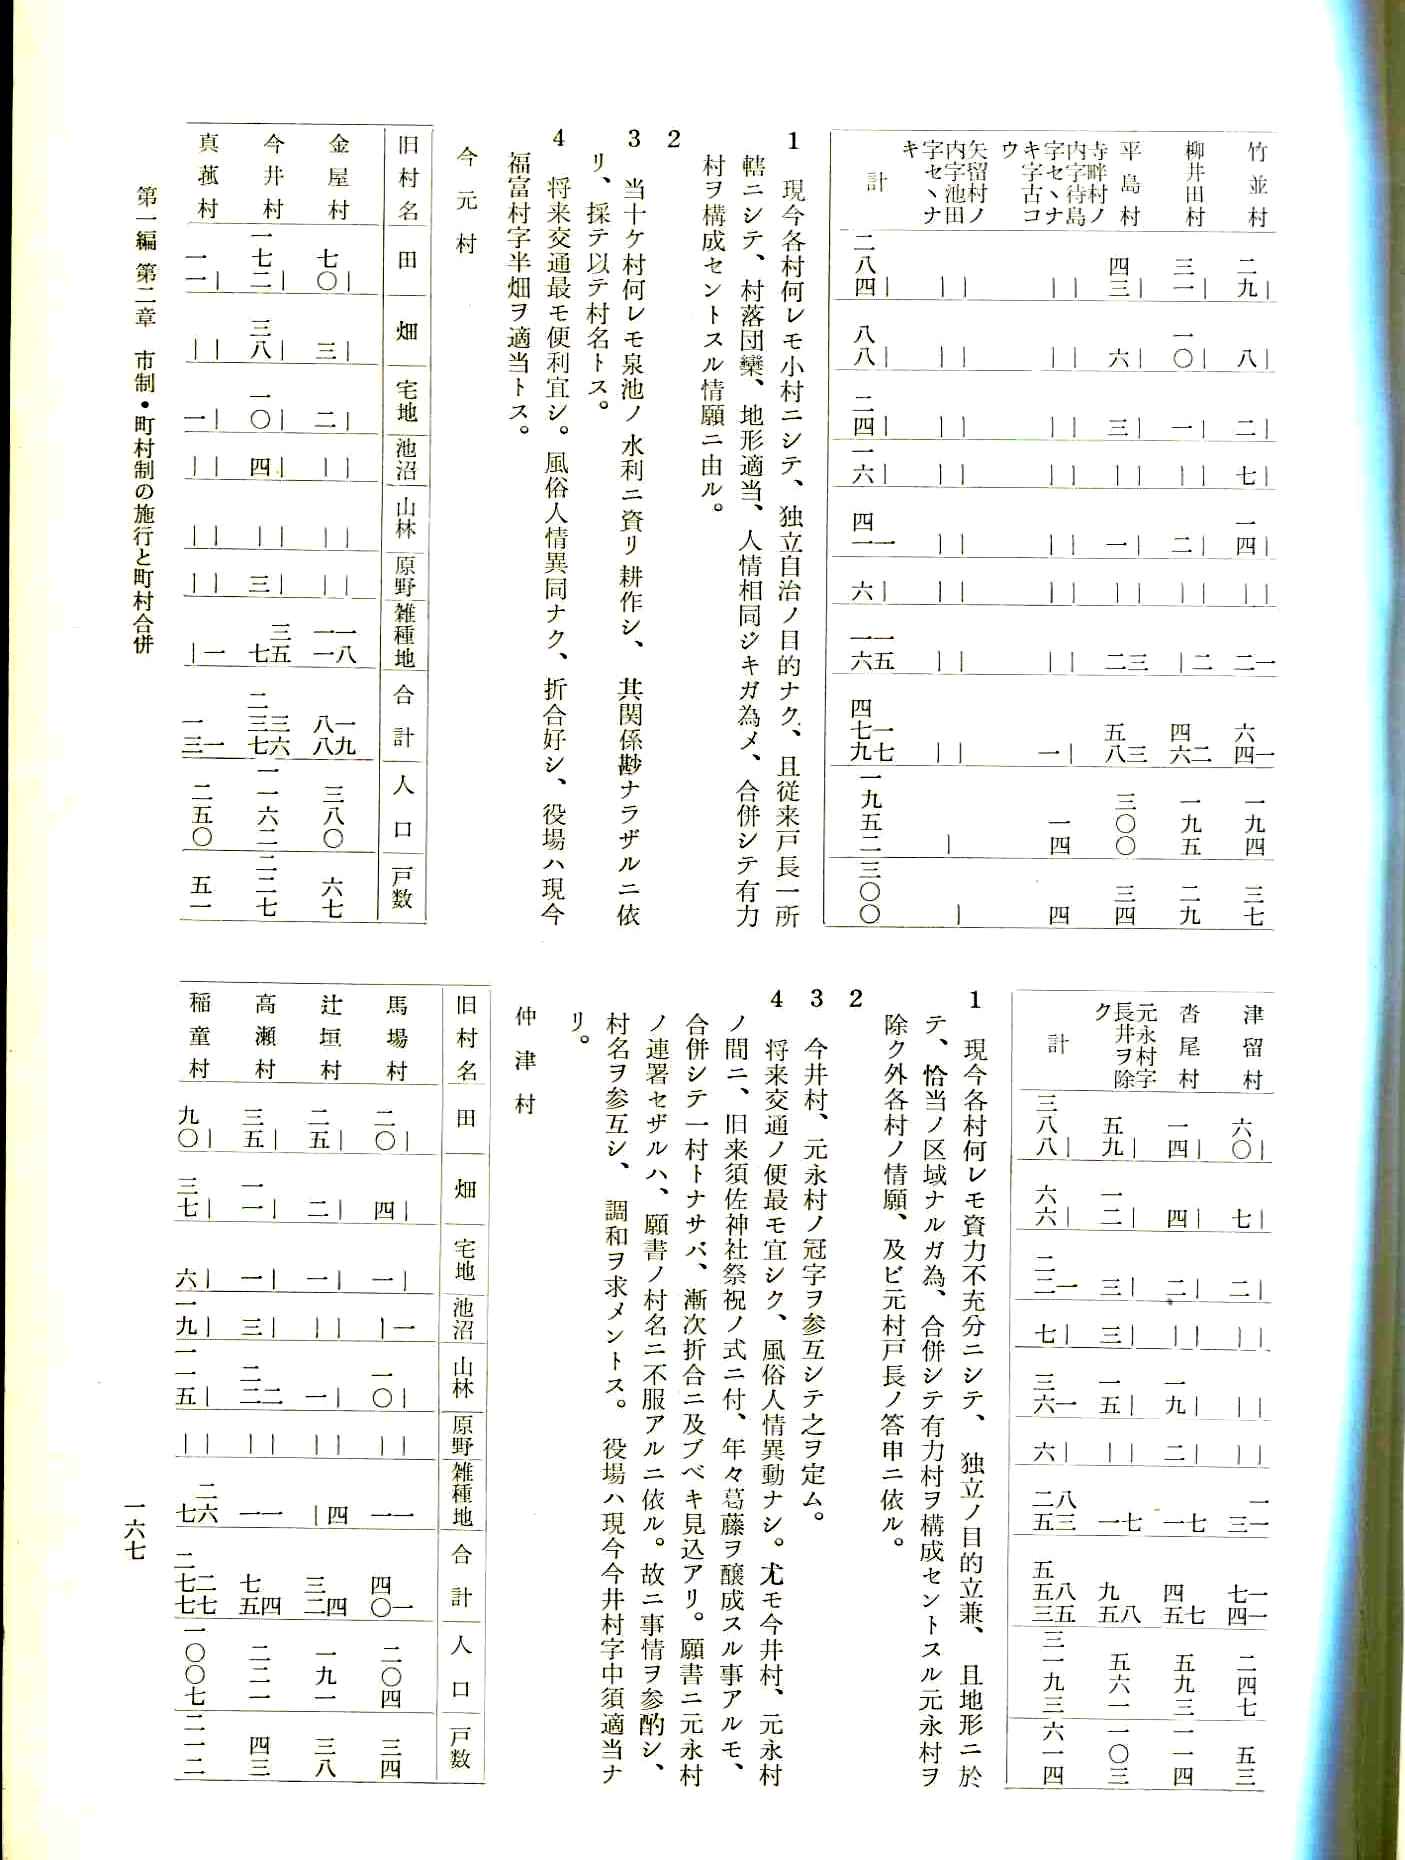 竹並村 ｜ 二九 ｜ 八 ｜ 二 ｜ 七 ｜ 一四 ｜ ｜ 一 二 一 六四 一九四 三七
柳井田村 ｜ 三一 ｜ 一〇 ｜ 一 ｜ ｜ ｜ 二 ｜ ｜ 二 ｜ 二 四六 一九五 二九
平島村 ｜ 四三 ｜ 六 ｜ 三 ｜ ｜ ｜ 一 ｜ ｜ 三 二 三 五八 三〇〇 三四
寺畔村ノ内字待島字セヽナキ字古コウ ｜ ｜ ｜ ｜ ｜ ｜ ｜ ｜ ｜ ｜ ｜ ｜ ｜ ｜ ｜ 一 一四 四
矢留村ノ内字池田字セヽナキ ｜ ｜ ｜ ｜ ｜ ｜ ｜ ｜ ｜ ｜ ｜ ｜ ｜ ｜ ｜ ｜ ｜ ｜
計 ｜ 二八四 ｜ 八八 ｜ 二四 ｜ 一六 一 四一 ｜ 六 一五 一六 一七 四七九 一九五二 三〇〇
1　現今各村何レモ小村ニシテ、独立自治ノ目的ナク、且従来戸長一所
轄ニシテ、村落団欒、地形適当、人情相同ジキガ為メ、合併シテ有力
村ヲ構成セントスル情願ニ由ル。
2
3　当十ケ村何レモ泉池ノ水利ニ資リ耕作シ、其関係尠ナラザルニ依
リ、採テ以テ村名トス。
4　将来交通最モ便利宜シ。風俗人情異同ナク、折合好シ、役場ハ現今
福富村字半畑ヲ適当トス。
今元村
旧村名 田 畑 宅地 池沼 山林 原野 雑種地 合計 人口 戸数
金屋村 ｜ 七〇 ｜ 三 ｜ 二 ｜ ｜ ｜ ｜ ｜ ｜ 一八 一一 一九 八八 三八〇 六七
今井村 ｜ 一七二 ｜ 三八 ｜ 一〇 ｜ 四 ｜ ｜ ｜ 三 三五 七 三六 二三七 一一六二 二二七
真菰村 ｜ 一一 ｜ ｜ ｜ 一 ｜ ｜ ｜ ｜ ｜ ｜ 一 ｜ 一 一三 二五〇 五一
津留村 ｜ 六〇 ｜ 七 ｜ 二 ｜ ｜ ｜ ｜ ｜ ｜ 一一 三 一一 七四 二四七 五三
沓尾村 ｜ 一四 ｜ 四 ｜ 二 ｜ ｜ ｜ 一九 ｜ 二 七 一 七 四五 五九三 一一四
元永村字長井ヲ除ク ｜ 五九 ｜ 一二 ｜ 三 ｜ 三 ｜ 一五 ｜ ｜ 七 一 八 九五 五六一 一〇三
計 ｜ 三八八 ｜ 六六 一 二二 ｜ 七 一 三六 ｜ 六 八三 二五 八五 五五三 三一九三 六一四
1　現今各村何レモ資力不充分ニシテ、独立ノ目的立兼、且地形ニ於
テ、恰当ノ区域ナルガ為、合併シテ有力村ヲ構成セントスル元永村ヲ
除ク外各村ノ情願、及ビ元村戸長ノ答申ニ依ル。
2
3　今井村、元永村ノ冠字ヲ参互シテ之ヲ定ム。
4　将来交通ノ便最モ宜シク、風俗人情異動ナシ。尤モ今井村、元永村
ノ間ニ、旧来須佐神社祭祝ノ式ニ付、年々葛藤ヲ醸成スル事アルモ、
合併シテ一村トナサバ、漸次折合ニ及ブベキ見込アリ。願書ニ元永村
ノ連署セザルハ、願書ノ村名ニ不服アルニ依ル。故ニ事情ヲ参酌シ、
村名ヲ参互シ、調和ヲ求メントス。役場ハ現今今井村字中須適当ナ
リ。
仲津村
旧村名 田 畑 宅地 池沼 山林 原野 雑種地 合計 人口 戸数
馬場村 ｜ 二〇 ｜ 四 ｜ 一 一 ｜ ｜ 一〇 ｜ ｜ 一 一 一 四〇 二〇四 三四
辻垣村 ｜ 二五 ｜ 二 ｜ 一 ｜ ｜ ｜ 一 ｜ ｜ 四 ｜ 四 三二 一九一 三八
高瀬村 ｜ 三五 ｜ 一一 ｜ 一 ｜ 三 二 二二 ｜ ｜ 一 一 四 七五 二二一 四三
稲童村 ｜ 九〇 ｜ 三七 ｜ 六 ｜ 一九 ｜ 一一五 ｜ ｜ 二六 七 二七 二七七 一〇〇七 二一二
第一編 第二章　市制・町村制の施行と町村合併
一六七